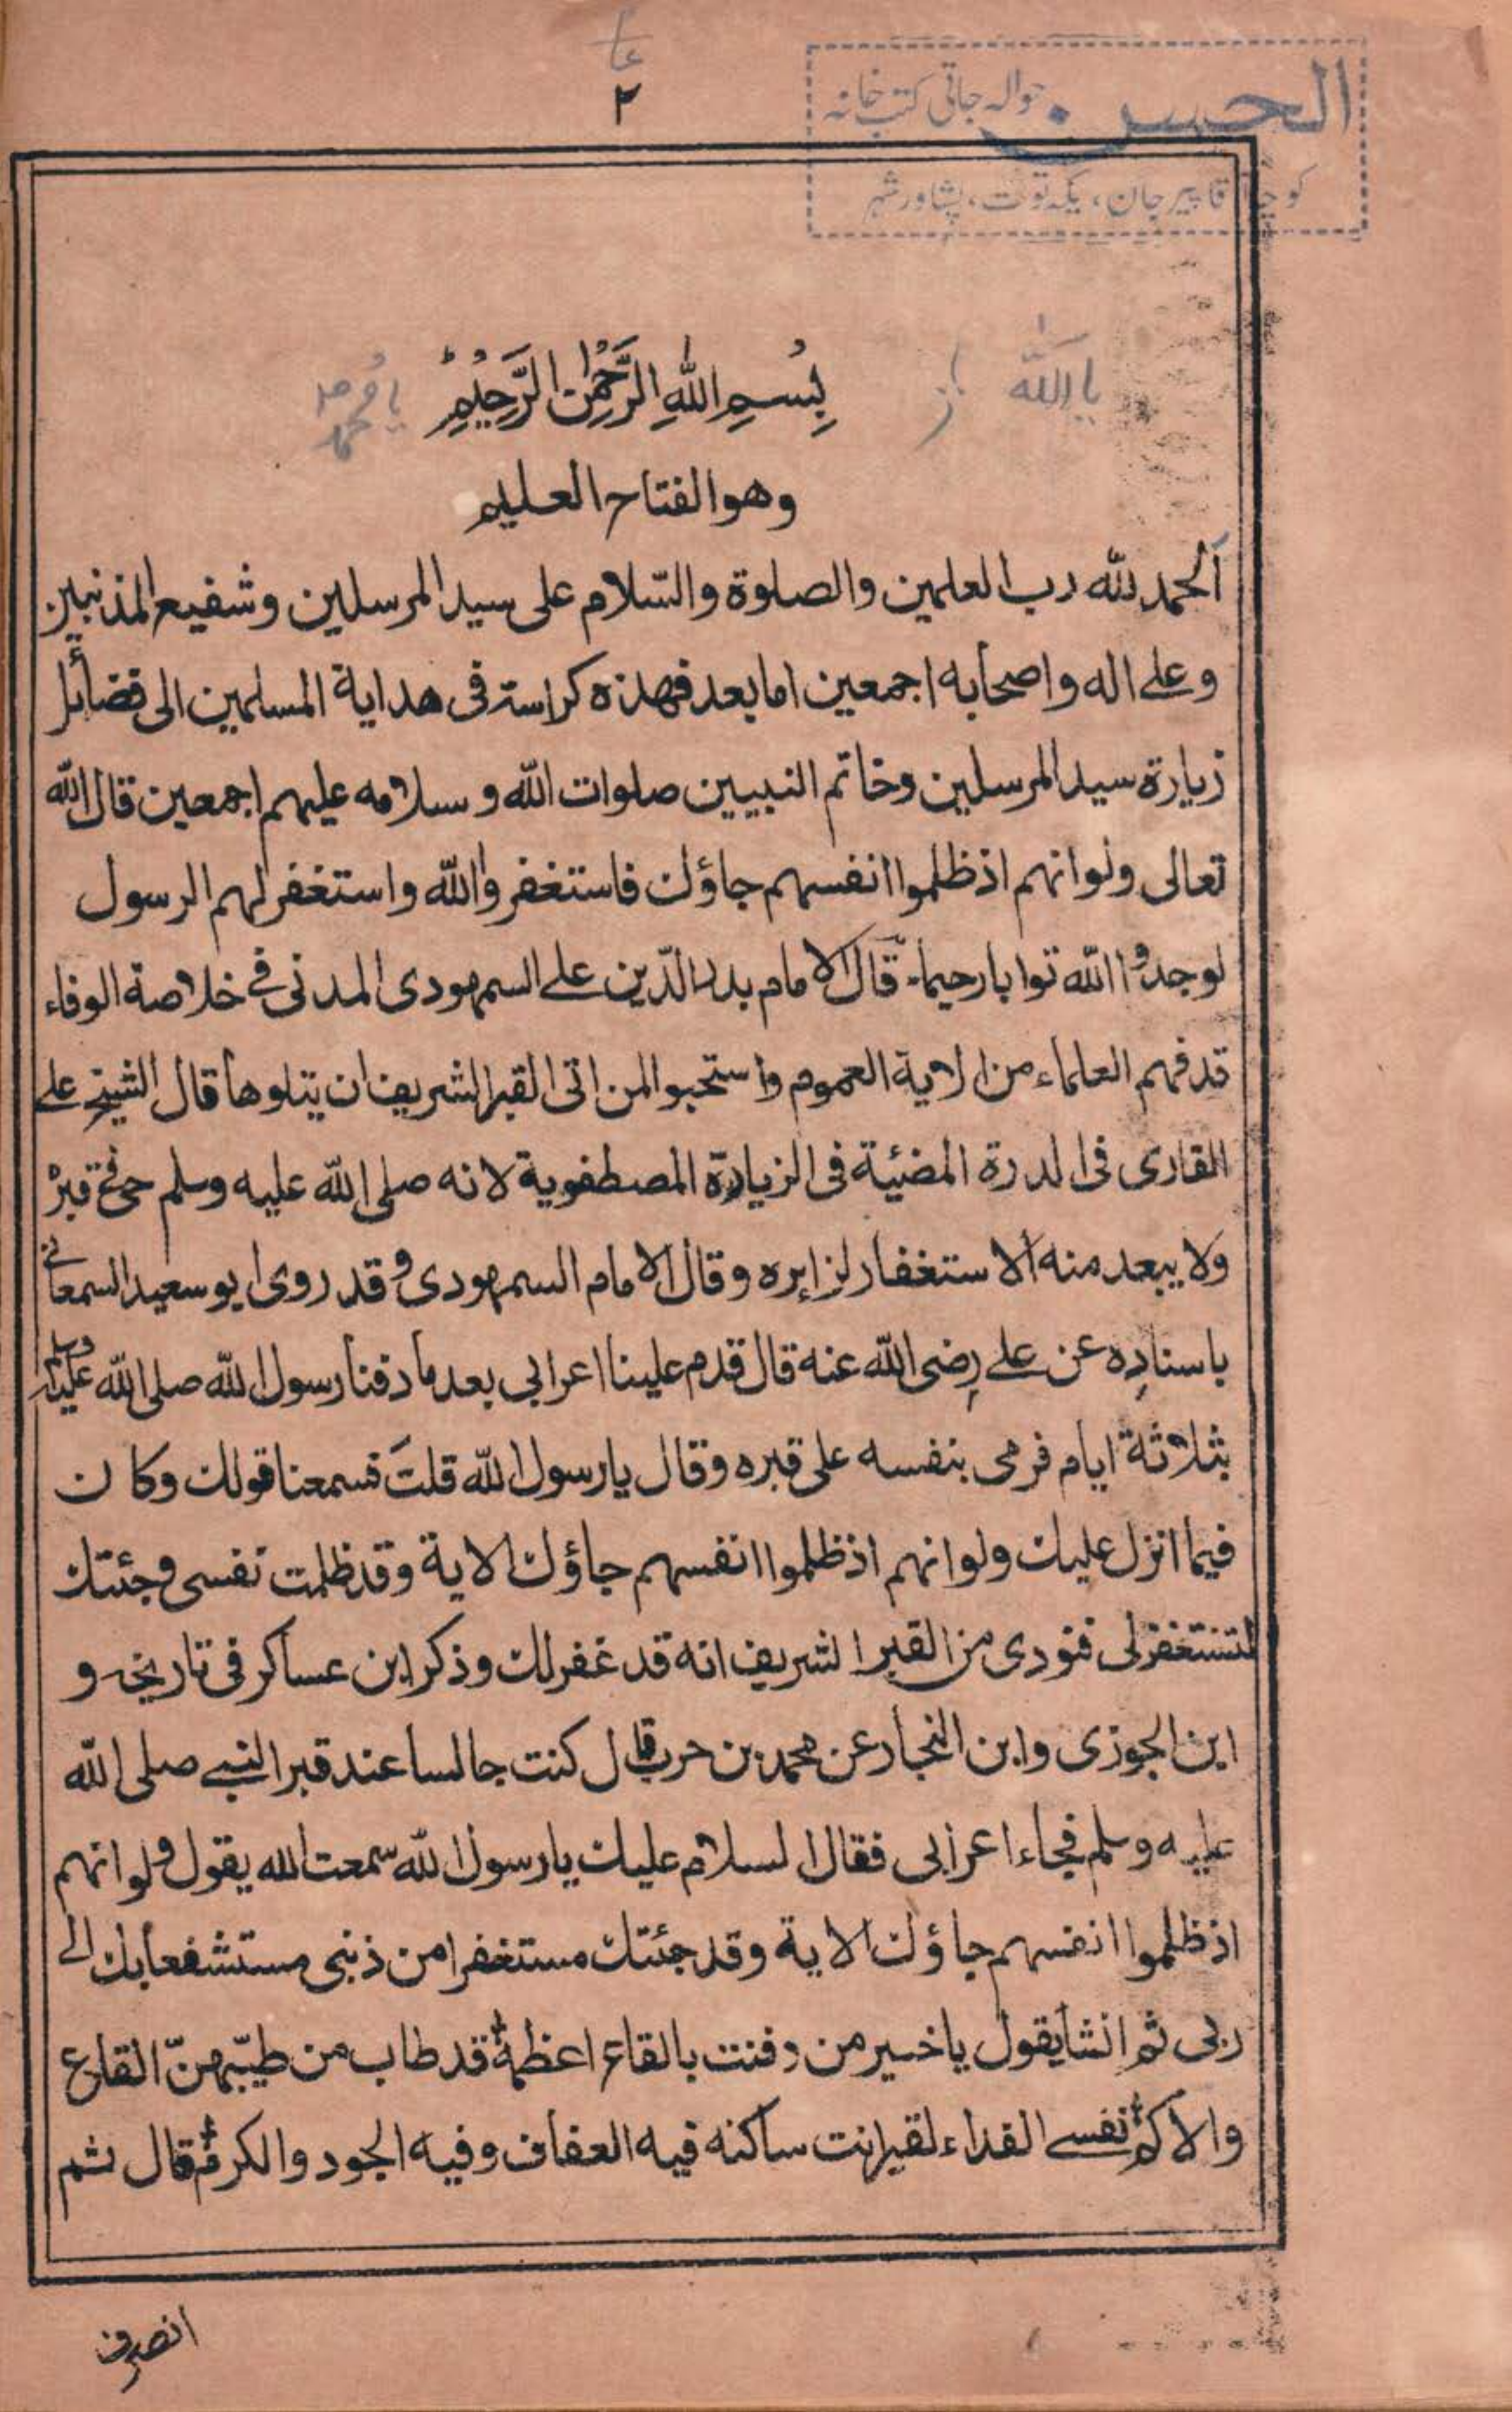 ٢
الحسن حوالہ جاتی کتب خانہ
کوچہ آقا پیر جان، یکہ توت، پشاور شہر
یا اللہ
بِسْمِ اللهِ الرَّحْمٰنِ الرَّحِيْمِ
یا محمد
وهو الفتاح العليم
الحمد لله رب العلمين والصلوة والسّلام على سيد المرسلين وشفيع المذنبين
وعلى اله واصحابه اجمعين اما بعد فهذه كراسة فى هداية المسلمين الى فضائل
زيارة سيد المرسلين وخاتم النبيين صلوات الله وسلامه عليهم اجمعين قال الله
تعالى ولوانهم اذ ظلموا انفسهم جاؤك فاستغفروا الله واستغفر لهم الرسول
لوجدوا الله توابا رحيماء قال الامام بدر الدّين على السمهودى المدنى فى خلاصة الوفاء
قد فهم العلماء من الاية العموم واستحبوا لمن اتى القبر الشريف ان يتلوها قال الشيخ على
القارى فى الدرة المضئية فى الزيارة المصطفوية لانه صلى الله عليه وسلم حى فى قبره
ولا يبعد منه الاستغفار لزايره وقال الامام السمهودى وقد روى ابو سعيد السمعانى
باسناده عن على رضى الله عنه قال قدم علينا اعرابى بعد ما دفنا رسول الله صلى الله عليه وسلم
بثلاثة ايام فرمى بنفسه على قبره وقال يا رسول الله قلتَ فسمعنا قولك وكان
فيما انزل عليك ولوانهم اذ ظلموا انفسهم جاؤك الاية وقد ظلمت نفسى وجئتك
لتستغفرلى فنودى من القبر الشريف انه قد غفرلك وذكر ابن عساكر فى تاريخه و
ابن الجوزى وابن النجار عن محمد بن حرب قال كنت جالسا عند قبر النبى صلى الله
عليه وسلم فجاء اعرابى فقال السلام عليك يا رسول الله سمعت الله يقول ولوانهم
اذ ظلموا انفسهم جاؤك الاية وقد جئتك مستغفرا من ذنبى مستشفعا بك الى
ربى ثم انشا يقول يا خير من دفنت بالقاع اعظمه قد طاب من طيّبهنّ القاع
والاكم نفسى الفداء لقبر انت ساكنه فيه العفاف وفيه الجود والكرم قال ثم
انصرف